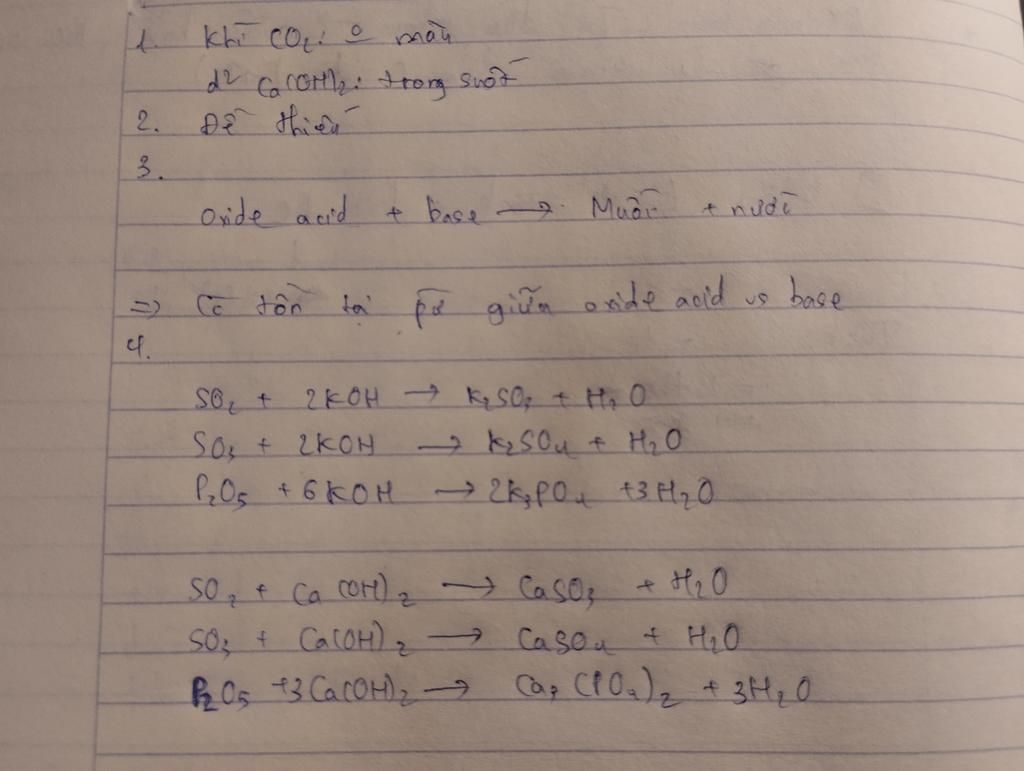 1. Khí CO₂: o màu
d² Ca(OH)₂: trong suốt
2.
3.
Oxide acid + base → Muối + nước
=> Có tồn tại pứ giữa oxide acid vs base
4.
SO₂ + 2KOH → K₂SO₃ + H₂O
SO₃ + 2KOH → K₂SO₄ + H₂O
P₂O₅ + 6KOH → 2K₃PO₄ + 3H₂O
SO₂ + Ca(OH)₂ → CaSO₃ + H₂O
SO₃ + Ca(OH)₂ → CaSO₄ + H₂O
P₂O₅ + 3Ca(OH)₂ → Ca₃(PO₄)₂ + 3H₂O